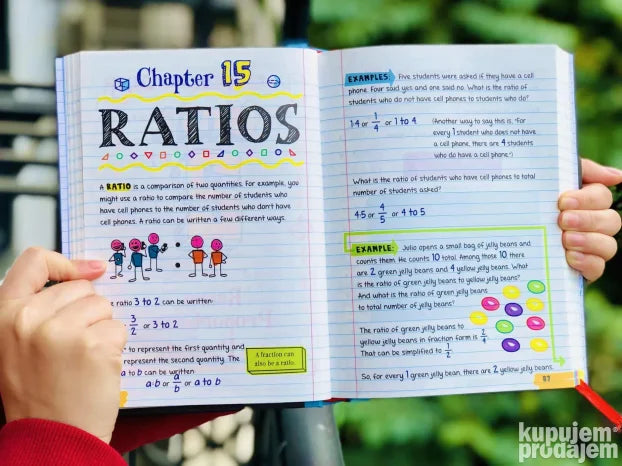 Chapter 15
RATIOS
A RATIO is a comparison of two quantities. For example, you
might use a ratio to compare the number of students who
have cell phones to the number of students who don't have
cell phones. A ratio can be written a few different ways.
:
ratio 3 to 2 can be written:
3/2 or 3 to 2
to represent the first quantity and
represent the second quantity. The
a to b can be written
a:b or a/b or a to b
A fraction can
also be a ratio.
EXAMPLES: Five students were asked if they have a cell
phone. Four said yes and one said no. What is the ratio of
students who do not have cell phones to students who do?
1:4 or 1/4 or 1 to 4
(Another way to say this is, "For
every 1 student who does not have
a cell phone, there are 4 students
who do have a cell phone.")
What is the ratio of students who have cell phones to total
number of students asked?
4:5 or 4/5 or 4 to 5
EXAMPLE: Julio opens a small bag of jelly beans and
counts them. He counts 10 total. Among those 10 there
are 2 green jelly beans and 4 yellow jelly beans. What
is the ratio of green jelly beans to yellow jelly beans?
And what is the ratio of green jelly beans
to total number of jelly beans?
The ratio of green jelly beans to
yellow jelly beans in fraction form is 2/4.
That can be simplified to 1/2
So, for every 1 green jelly bean, there are 2 yellow jelly beans.
87
kupujem
prodajem